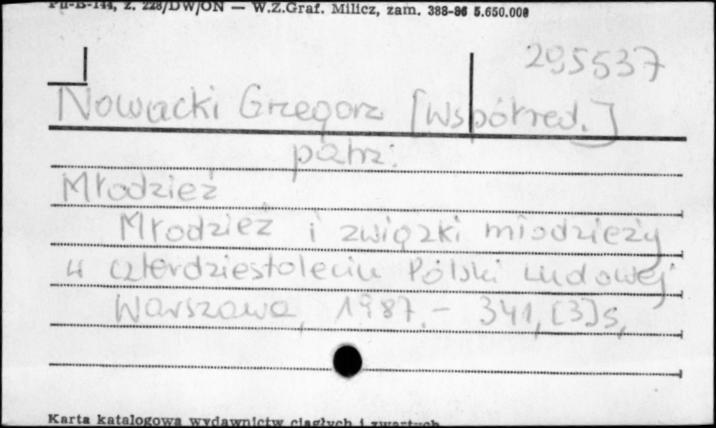 Pu-B-144, z. 228/DW/ON — W.Z.Graf. Milicz, zam. 388-86 5.650.000
295537
Nowacki Grzegorz [Współred.]
patrz:
Młodzież
Młodzież i związki młodzieży
w czterdziestoleciu Polski Ludowej
Warszawa, 1987. - 341, [3] s,
Karta katalogowa wydawnictw ciągłych i zwartych